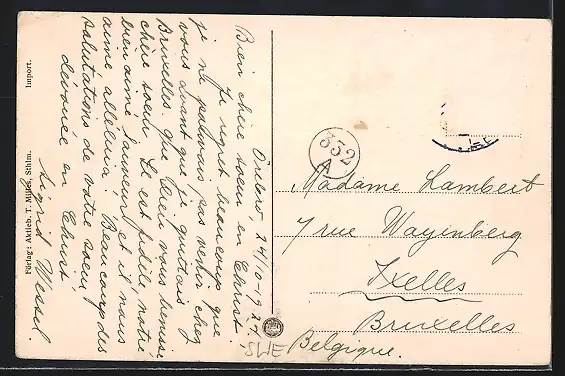 Örebro, 24/10-1921.
Bien chère soeur en Christ.
Je regret beaucoup que
je ne pouvais pas venir chez
vous avant que je quittais
Bruxelles. Que Dieu vous bénisse
chère soeur. Il est fidèle notre
bien aimé Sauveur et il nous
aime alleluia! Beaucoup des
salutations de votre soeur
dévouée en Christ
Sigrid Wessel.
Förlag: Aktieb. T. Möller, Sthlm. Import.
332
Madame Lambert
7 rue Wayenberg
Ixelles
Bruxelles
Belgique.
SWE